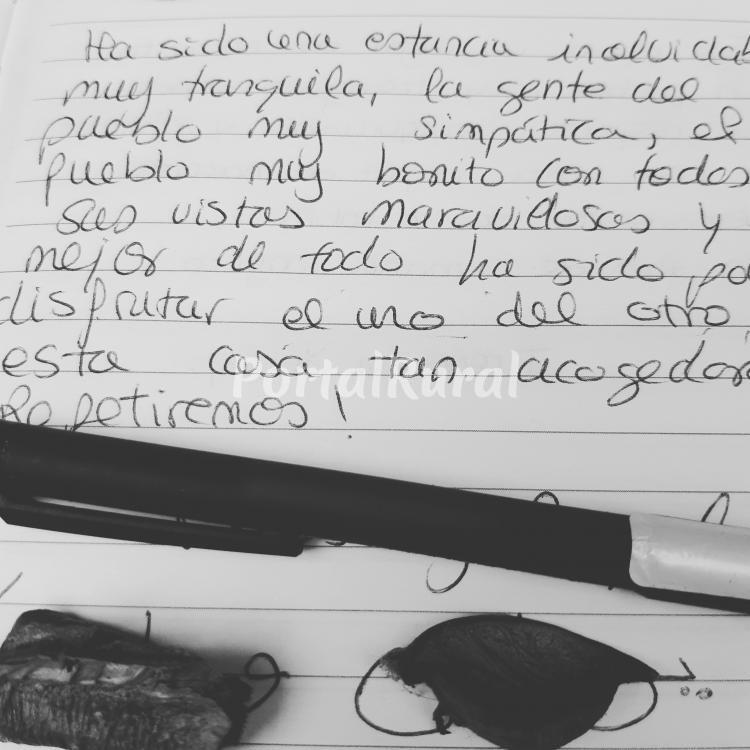 Ha sido una estancia inolvidab
muy tranquila, la gente del
pueblo muy simpática, el
pueblo muy bonito con todos
sus vistas maravillosas y
mejor de todo ha sido po
disfrutar el uno del otro
esta casa tan acogedor
Repetiremos!
PortalRural